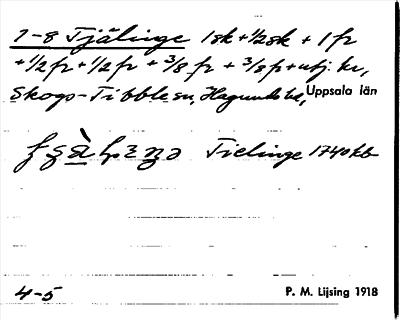 7-8 Tjälinge 1 sk + 1/2 sk + 1 fr
+ 1/2 fr + 1/2 fr + 3/8 fr + 3/8 fr + utj. kr,
Skogs-Tibble sn, Hagunda hd, Uppsala län
Tielinge 1740 kb
4-5 P. M. Lijsing 1918